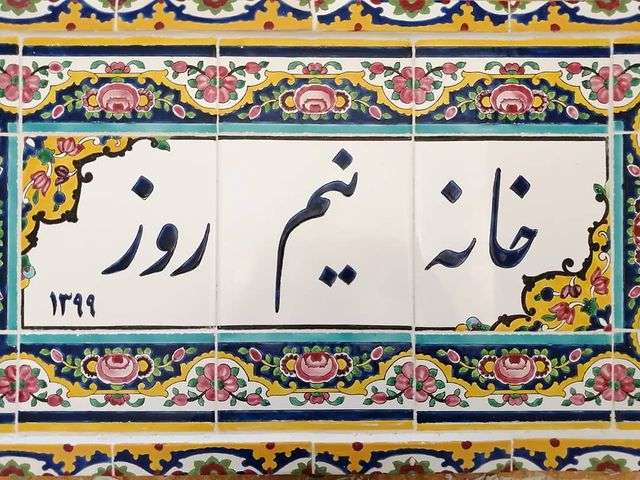 خانه نیم روز
۱۳۹۹